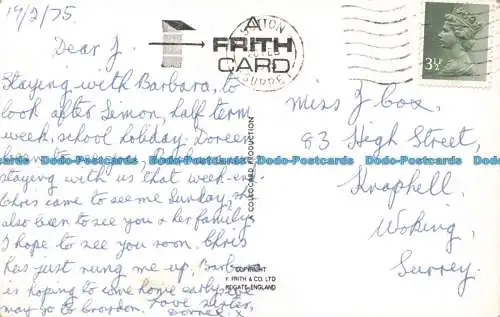 19/2/75.
Dear J.
Staying with Barbara, to
look after Simon, half term
week, school holiday. Doreen
staying with us that week-en
Chris came to see me Sunday, she
also been to see you & her family.
I hope to see you soon. Chris
has just rung me up, Barbara
is hoping to come home early, we
may go to Croydon. Love sister,
Doree. x
A
FRITH
CARD
SUTTON
SURREY
A COLOURCARD PRODUCTION
COPYRIGHT
F. FRITH & CO. LTD
REIGATE-ENGLAND
3½P
Miss J Cox,
83 High Street,
Knaphill,
Woking,
Surrey.
Dodo-Postcards Dodo-Postcards Dodo-Postcards Dodo-Postcards Dodo-Postcards